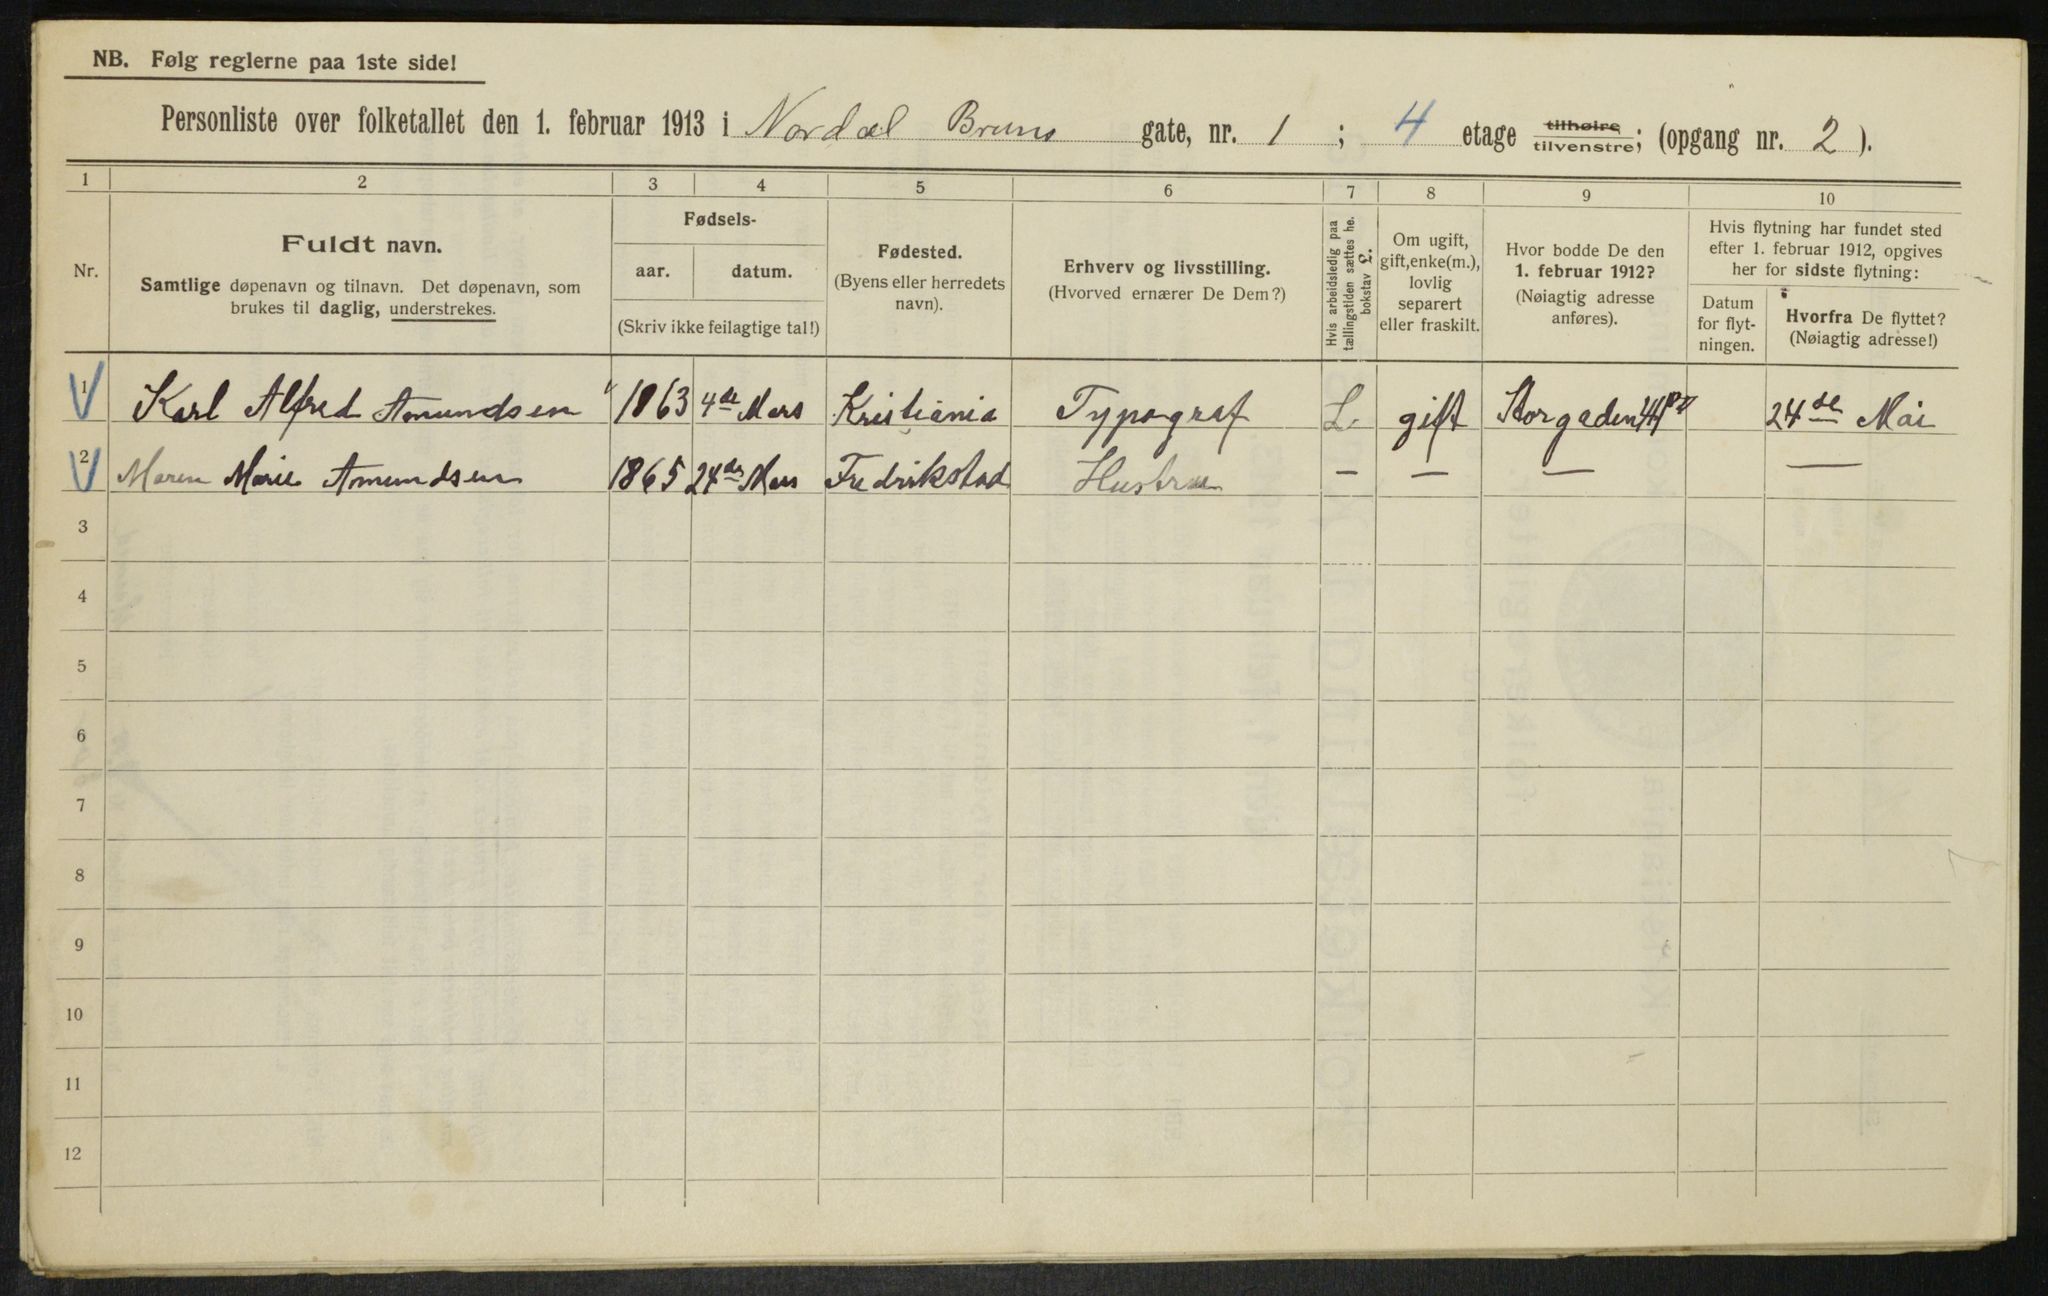 NB. Følg reglerne paa 1ste side!
Personliste over folketallet den 1. februar 1913 i Nordal Bruns gate, nr. 1 ; 4 etage tilhøire tilvenstre; (opgang nr. 2 ).
1 2 3 4 5 6 7 8 9 10
Nr.
Fuldt navn.
Samtlige døpenavn og tilnavn. Det døpenavn, som
brukes til daglig, understrekes.
Fødsels-
aar. datum.
(Skriv ikke feilagtige tal!)
Fødested.
(Byens eller herredets
navn).
Erhverv og livsstilling.
(Hvorved ernærer De Dem?)
Hvis arbeidsledig paa
tællingstiden sættes he.
bokstav L.
Om ugift,
gift, enke(m.),
lovlig
separert
eller fraskilt.
Hvor bodde De den
1. februar 1912?
(Nøiagtig adresse
anføres).
Hvis flytning har fundet sted
efter 1. februar 1912, opgives
her for sidste flytning:
Datum
for flyt-
ningen.
Hvorfra De flyttet?
(Nøiagtig adresse!)
1 Karl Alfred Amundsen 1863 4de Mars Kristiania Typograf L. gift Storgaden 24de Mai
2 Maren Marie Amundsen 1865 24de Mars Fredrikstad Hustru — — — —
3
4
5
6
7
8
9
10
11
12